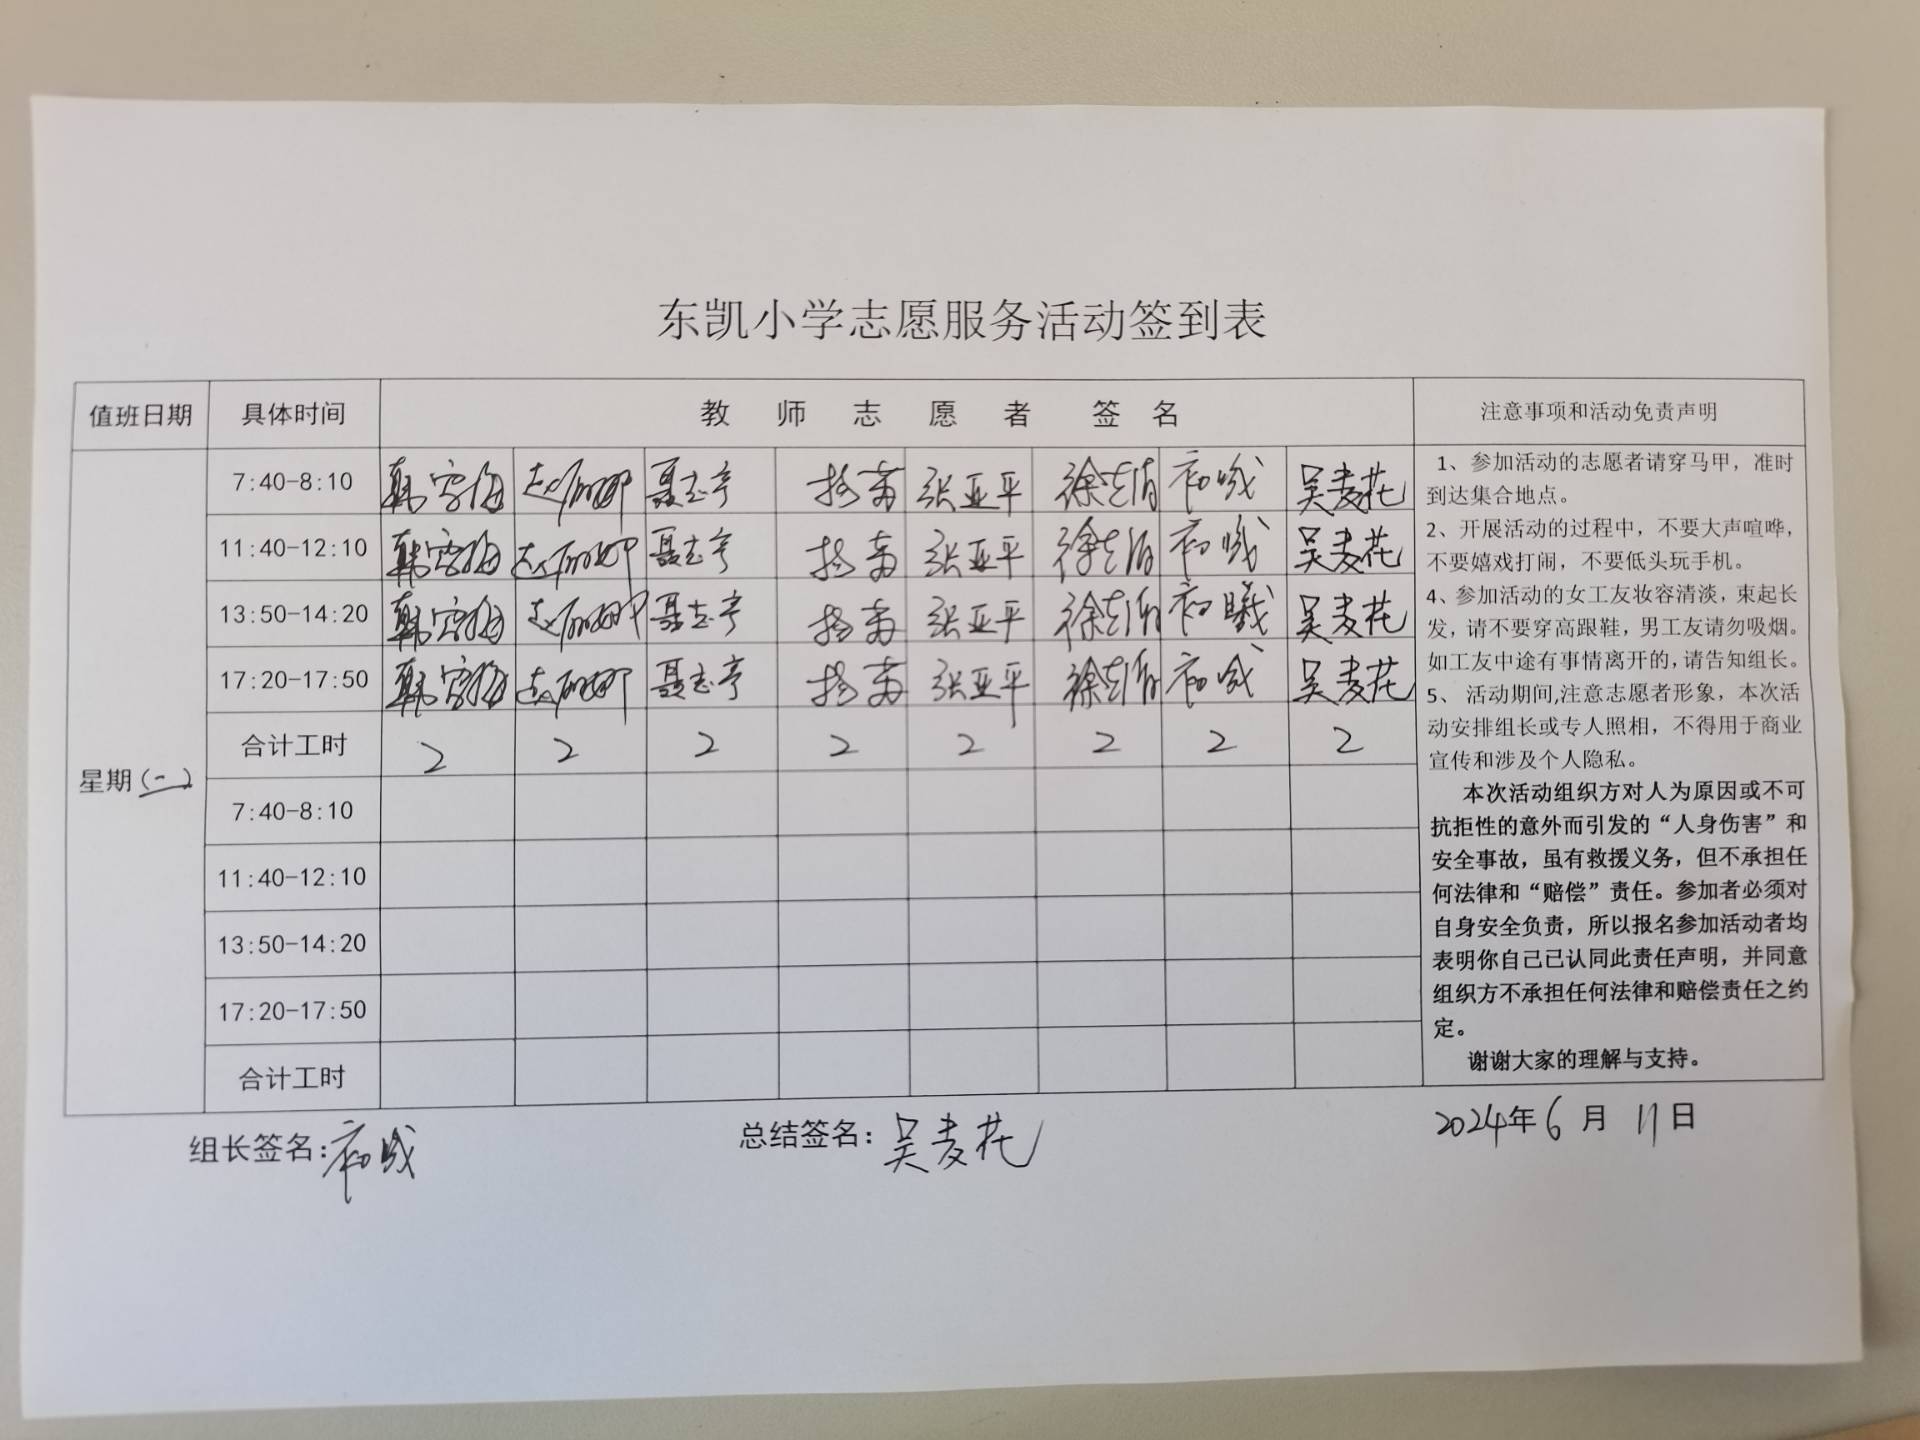 东凯小学志愿服务活动签到表
值班日期 具体时间 教师志愿者签名 注意事项和活动免责声明
7:40-8:10 聂志亭 杨芾 张亚平 吴麦花
11:40-12:10 聂志亭 张亚平 吴麦花
13:50-14:20 聂志亭 张亚平 吴麦花
17:20-17:50 聂志亭 张亚平 吴麦花
合计工时 2 2 2 2 2 2 2 2
星期(一)
7:40-8:10
11:40-12:10
13:50-14:20
17:20-17:50
合计工时
1、参加活动的志愿者请穿马甲，准时
到达集合地点。
2、开展活动的过程中，不要大声喧哗，
不要嬉戏打闹，不要低头玩手机。
4、参加活动的女工友妆容清淡，束起长
发，请不要穿高跟鞋，男工友请勿吸烟。
如工友中途有事情离开的，请告知组长。
5、 活动期间,注意志愿者形象，本次活
动安排组长或专人照相，不得用于商业
宣传和涉及个人隐私。
本次活动组织方对人为原因或不可
抗拒性的意外而引发的“人身伤害”和
安全事故，虽有救援义务，但不承担任
何法律和“赔偿”责任。参加者必须对
自身安全负责，所以报名参加活动者均
表明你自己已认同此责任声明，并同意
组织方不承担任何法律和赔偿责任之约
定。
谢谢大家的理解与支持。
组长签名: 总结签名: 吴麦花 2024年6月11日